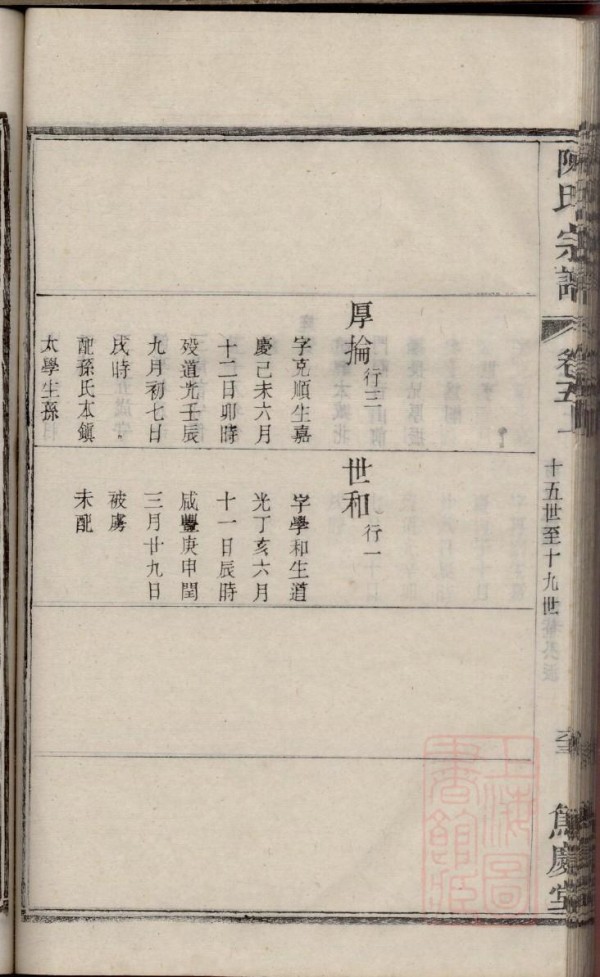 陳氏宗譜
卷五上
十五世至十九世
篤慶堂
厚掄 行三
字克順生嘉
慶己未六月
十二日卯時
歿道光壬辰
九月初七日
戌時
配孫氏本鎭
太學生孫
世和 行一
字學和生道
光丁亥六月
十一日辰時
咸豐庚申閏
三月廿九日
被虜
未配
上海圖
書館藏